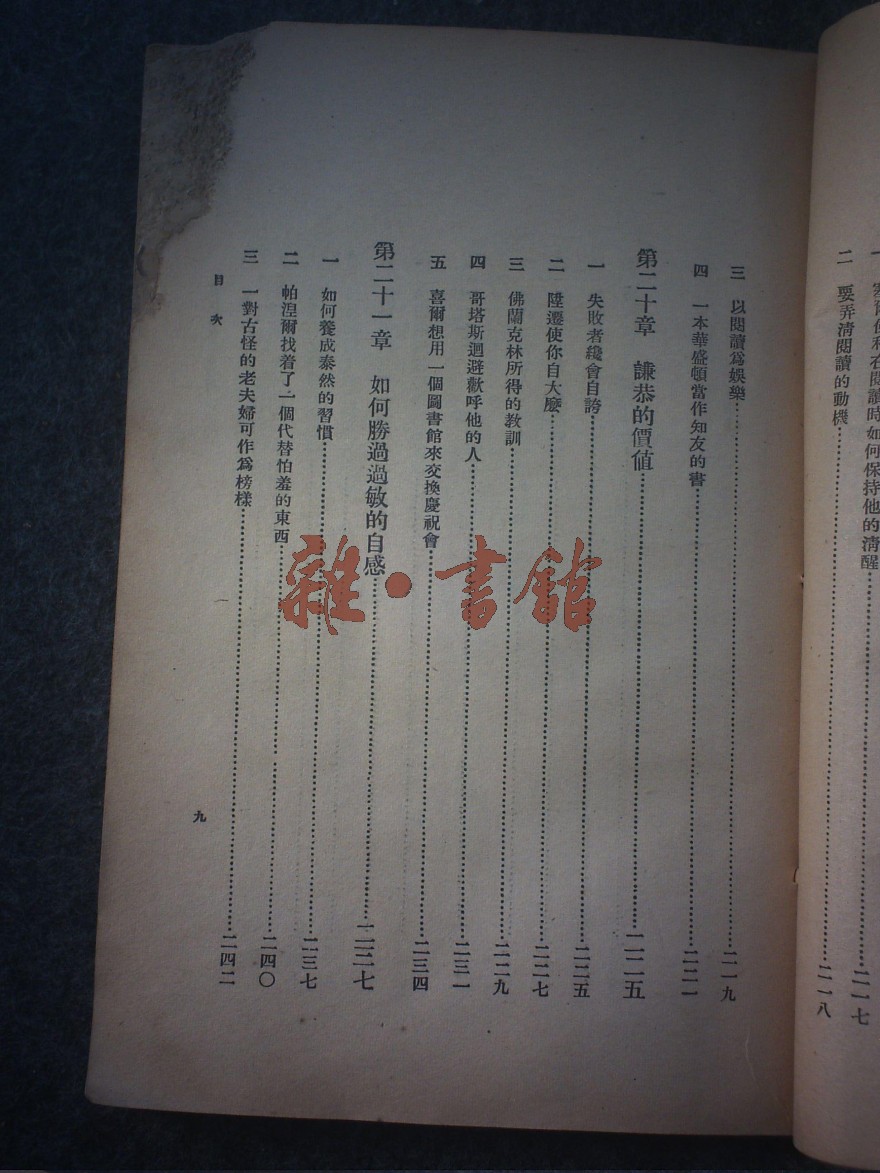 塞爾伎利在閱讀時如何保持他的清醒……二一七
二 要弄清閱讀的動機……二一八
三 以閱讀爲娛樂……二一九
四 一本華盛頓當作知友的書……二二一
第二十章 謙恭的價值……二二五
一 失敗者纔會自誇……二二五
二 陞遷使你自大麽……二二七
三 佛蘭克林所得的教訓……二二九
四 哥塔斯迴避歡呼他的人……二三一
五 喜爾想用一個圖書館來交換慶祝會……二三四
第二十一章 如何勝過過敏的自感……二三七
一 如何養成泰然的習慣……二三七
二 帕湼爾找着了一個代替怕羞的東西……二四〇
三 一對古怪的老夫婦可作爲榜樣……二四二
目次
九
雜·書館